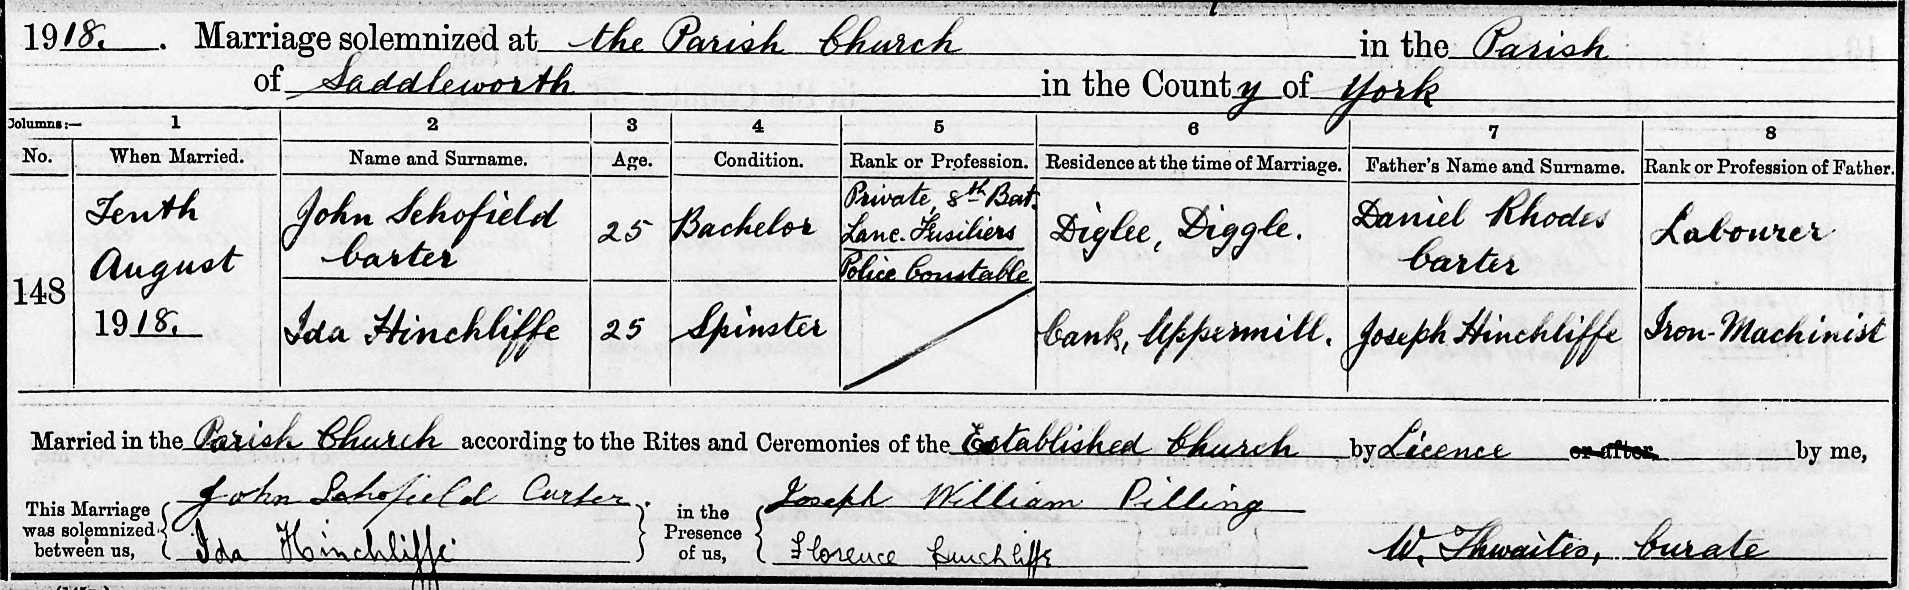 1918. Marriage solemnized at the Parish Church in the Parish
of Saddleworth in the County of York
Columns:— 1 2 3 4 5 6 7 8
No. When Married. Name and Surname. Age. Condition. Rank or Profession. Residence at the time of Marriage. Father's Name and Surname. Rank or Profession of Father.
148 Tenth August 1918. John Schofield Carter 25 Bachelor Private, 8th Bat. Lanc. Fusiliers Police Constable Diglee, Diggle. Daniel Rhodes Carter Labourer
Ida Hinchliffe 25 Spinster Bank, Uppermill. Joseph Hinchliffe Iron-Machinist
Married in the Parish Church according to the Rites and Ceremonies of the Established Church by Licence or after by me,
This Marriage was solemnized between us, John Schofield Carter. Ida Hinchliffe in the Presence of us, Joseph William Pilling Florence Hinchliffe W. Thwaites, Curate